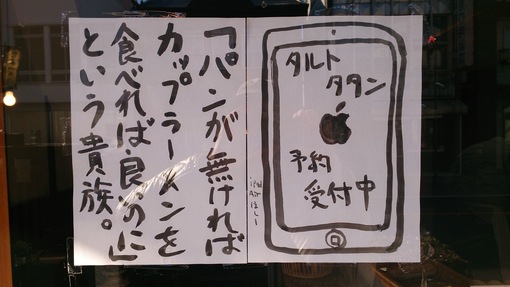 タルト
タタン
予約
受付中
「パンが無ければ
カップラーメンを
食べれば良いのに」
という貴族。